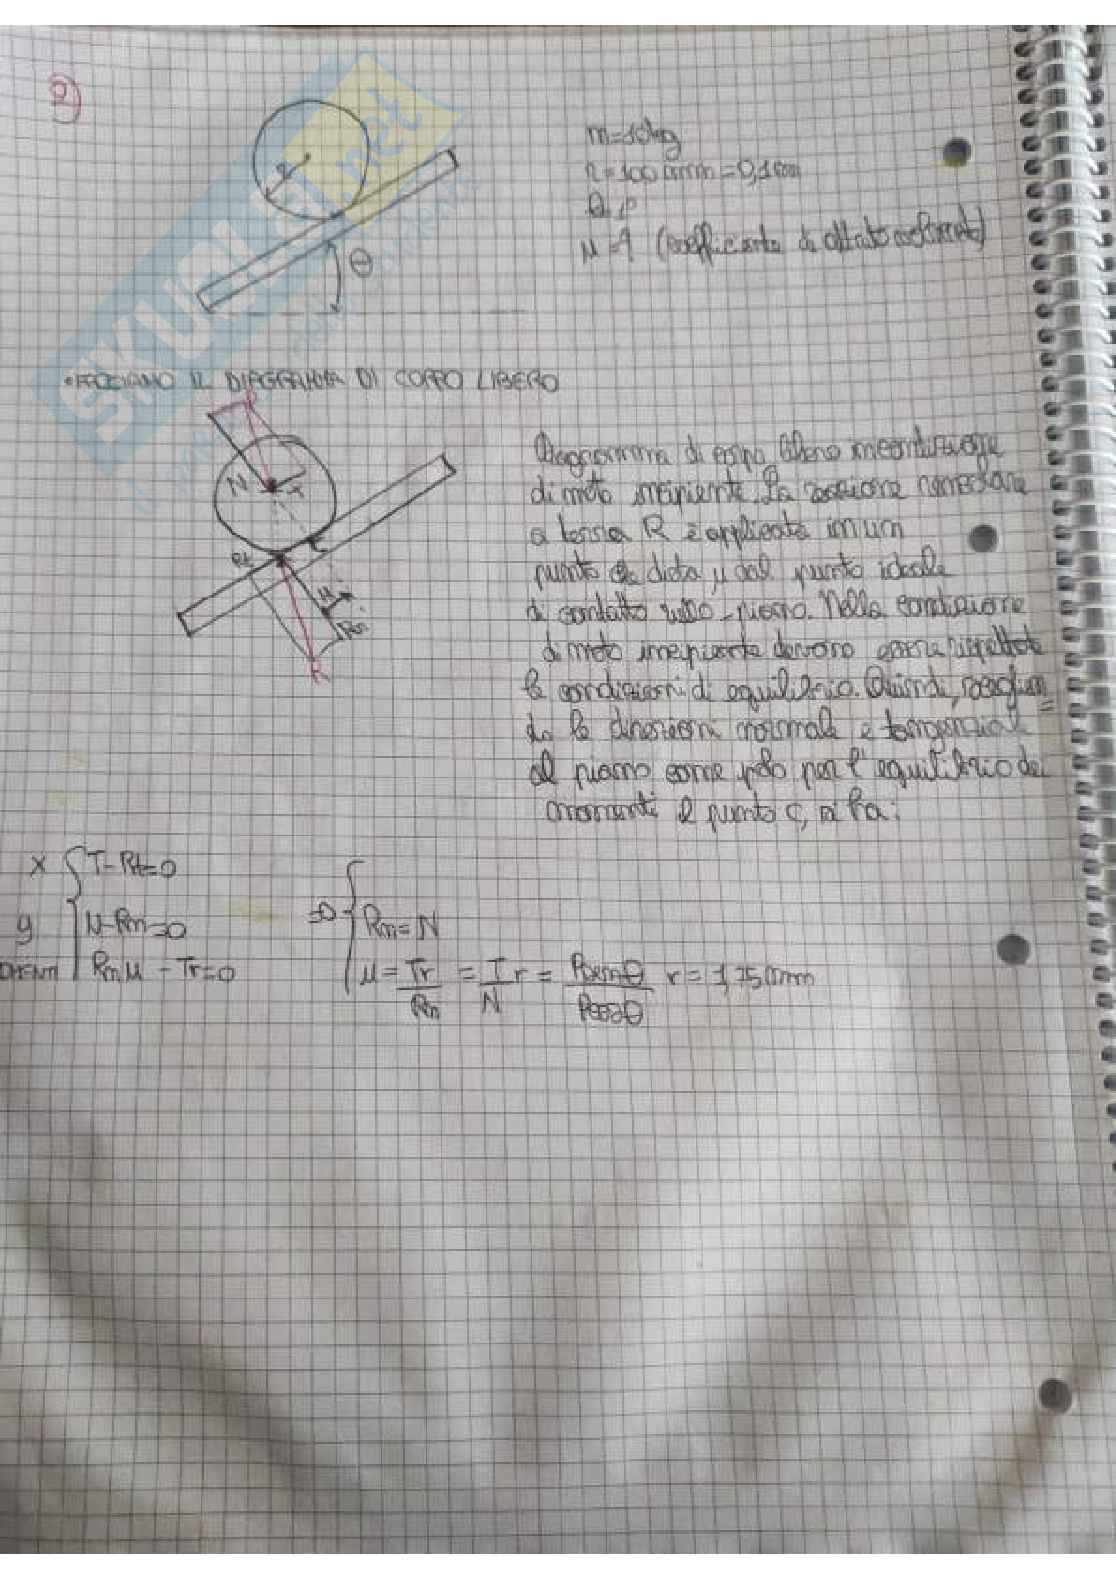 2)
m=10kg
r=100mm=0,1m
θ
μ=? (coefficiente di attrito
r
θ
•FACCIAMO IL DIAGRAMMA DI CORPO LIBERO
P
N
T
Rt
C
μ
Rn
R
Diagramma di corpo libero in condizione
di moto incipiente. La reazione
a terra R è applicata in un
punto che dista μ dal punto ideale
di contatto rullo-piano. Nella condizione
di moto incipiente devono essere rispettate
le condizioni di equilibrio. Quindi, scegli
le direzioni normale e tangenziale
al piano come polo per l'equilibrio dei
momenti il punto C, si ha:
x T-Rt=0
y N-Rn=0 => Rn=N
Rnμ - Tr=0 μ= Tr/Rn = T/N r = Psinθ/Pcosθ r = 1,75mm
SKUOLA.net